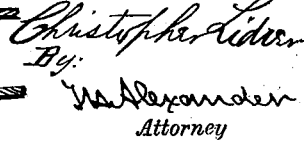 Christopher Lidren
By:
W.S. Alexander
Attorney